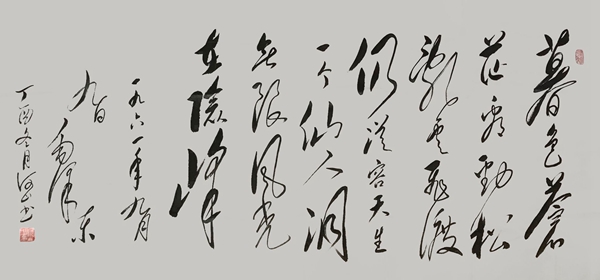 暮色蒼
茫看勁松
亂雲飛渡
仍從容天生
一个仙人洞
無限風光
在險峰
一九六一年九月
九日毛澤东
丁酉冬月书